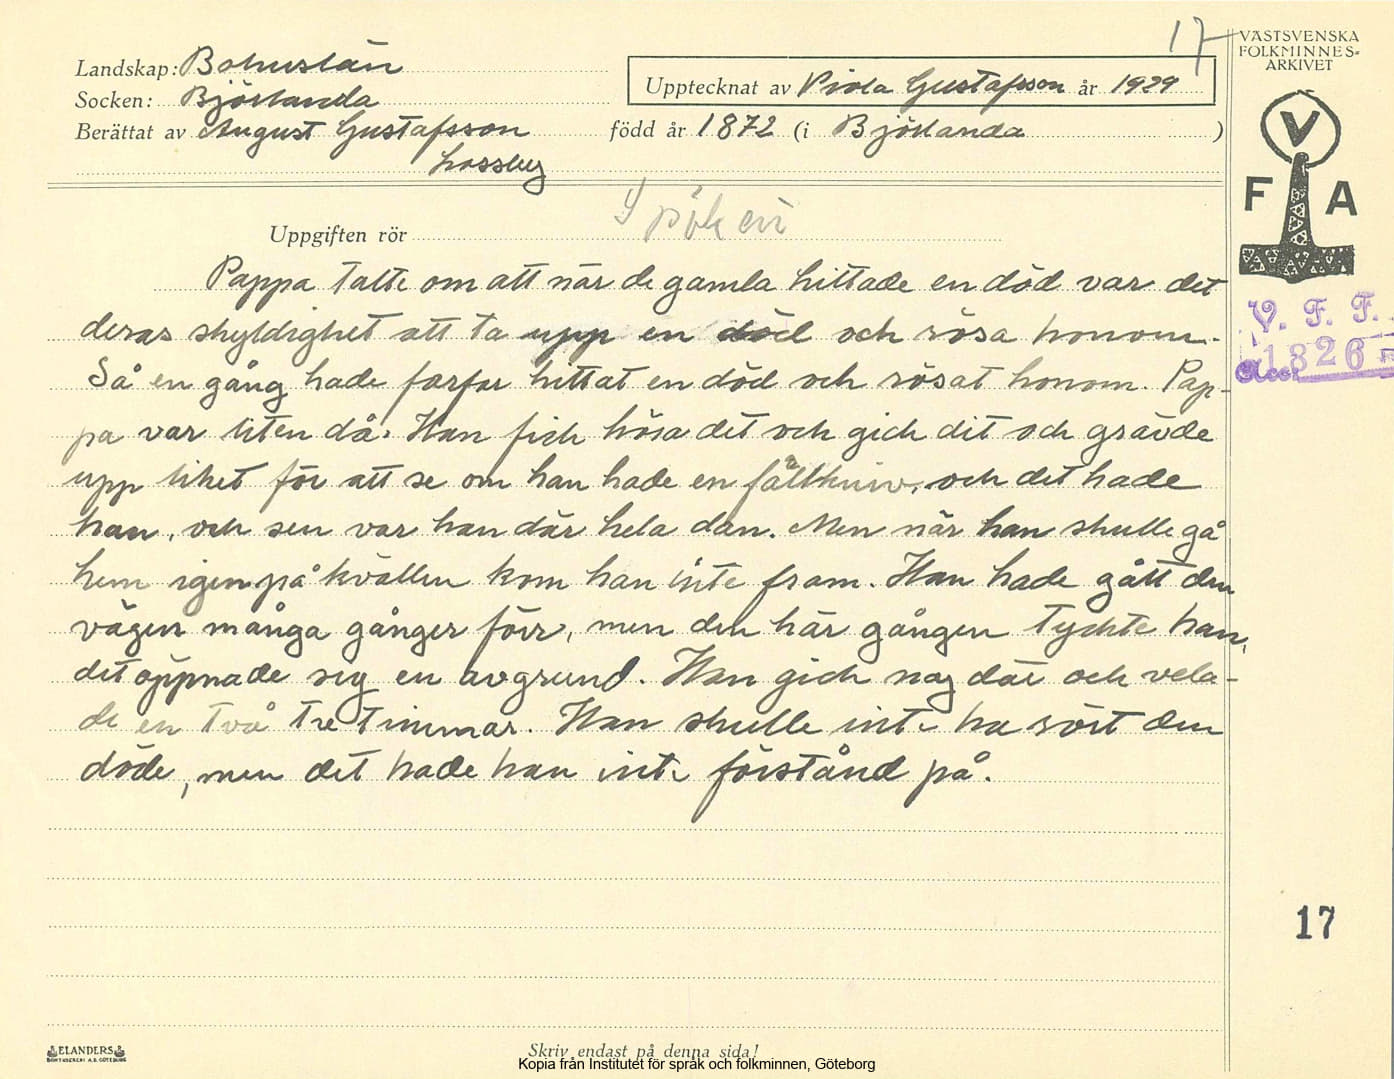 17
VÄSTSVENSKA
FOLKMINNES-
ARKIVET
Landskap: Bohuslän
Socken: Björlanda
Upptecknat av Viola Gustafsson år 1929
Berättat av August Gustafsson född år 1872 (i Björlanda )
Lossby
V
F A
Uppgiften rör Spöken
Pappa talte om att när de gamla hittade en död var det
deras skyldighet att ta upp en död och rösa honom.
Så en gång hade farfar hittat en död och rösat honom. Pap-
pa var liten då. Han fick hösa det och gick dit och grävde
upp liket för att se om han hade en fällkniv, och det hade
han, och sen var han där hela dan. Men när han skulle gå
hem igen på kvällen kom han inte fram. Han hade gått den
vägen många gånger förr, men den här gången tyckte han,
det öppnade sig en avgrund. Han gick nog där och vela-
de en två tre timmar. Han skulle inte ha rört den
döde, men det hade han inte förstånd på.
V. F. F.
Acc. 1826
17
ELANDERS
BOKTRYCKERI A.B. GÖTEBORG
Skriv endast på denna sida!
Kopia från Institutet för språk och folkminnen, Göteborg